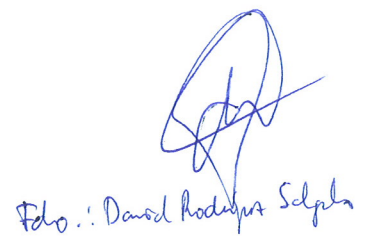 Fdo.: David Rodríguez Salgado